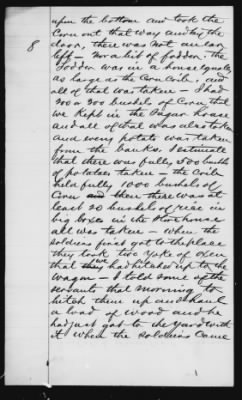 upon the bottom and took the
Corn out that way and by the
door, there was not an ear
8
left - nor a bit of fodder. The
fodder was in a house equally
as large as the Corn Crib. and
all of that was taken - I had
200 or 300 bushels of Corn, that
we kept in the Sugar house
and all of that was also taken
and every potato was taken
from the banks. I estimate
that there was fully 500 bush
of potatoes taken - the Crib
held fully 1000 bushels of
Corn and then there was at
least 20 bushels of rice in
big boxes in the Storehouse
all was taken - when the
soldiers first got to the place
they took two yoke of oxen
that we had hitched up to the
wagon - I told some of the
servants that morning to
hitch them up and haul
a load of wood and he
had just got to the yard with
it when the soldiers came